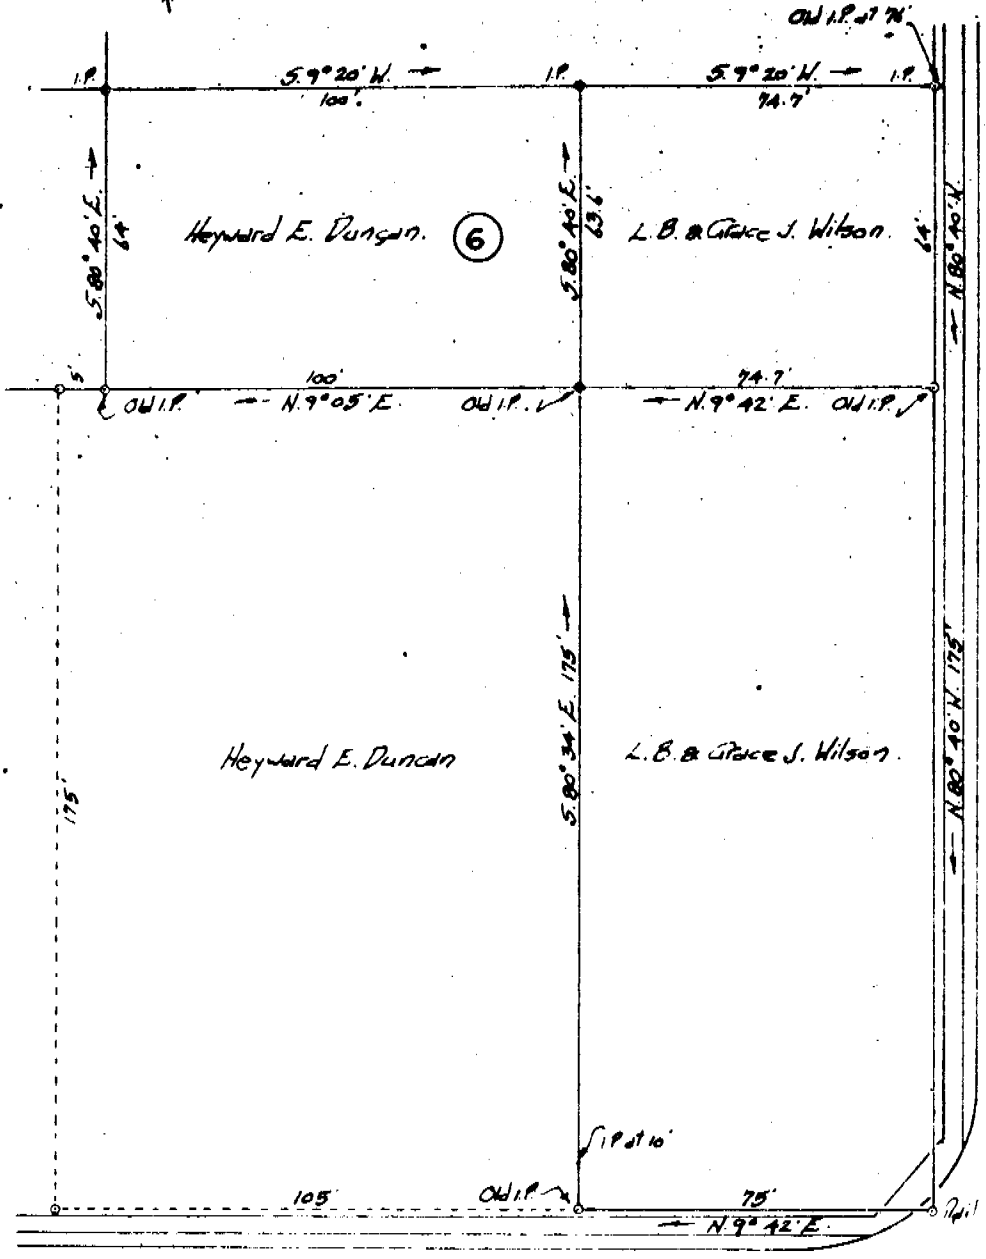 Old I.P. at 76'
I.P. S. 9° 20' W. I.P. S. 9° 20' W. I.P.
100'. 74.7'
S. 80° 40' E.
64'
Heyward E. Duncan. 6
S. 80° 40' E.
63.6'
L. B. & Grace J. Wilson.
64'
N. 80° 40' W.
5' 100' 74.7'
Old I.P. N. 9° 05' E. Old I.P. N. 9° 42' E. Old I.P.
175'
Heyward E. Duncan
S. 80° 34' E. 175'
L. B. & Grace J. Wilson.
N. 80° 40' W. 175'
I.P. at 10'
105' Old I.P. 75'
N. 9° 42' E.